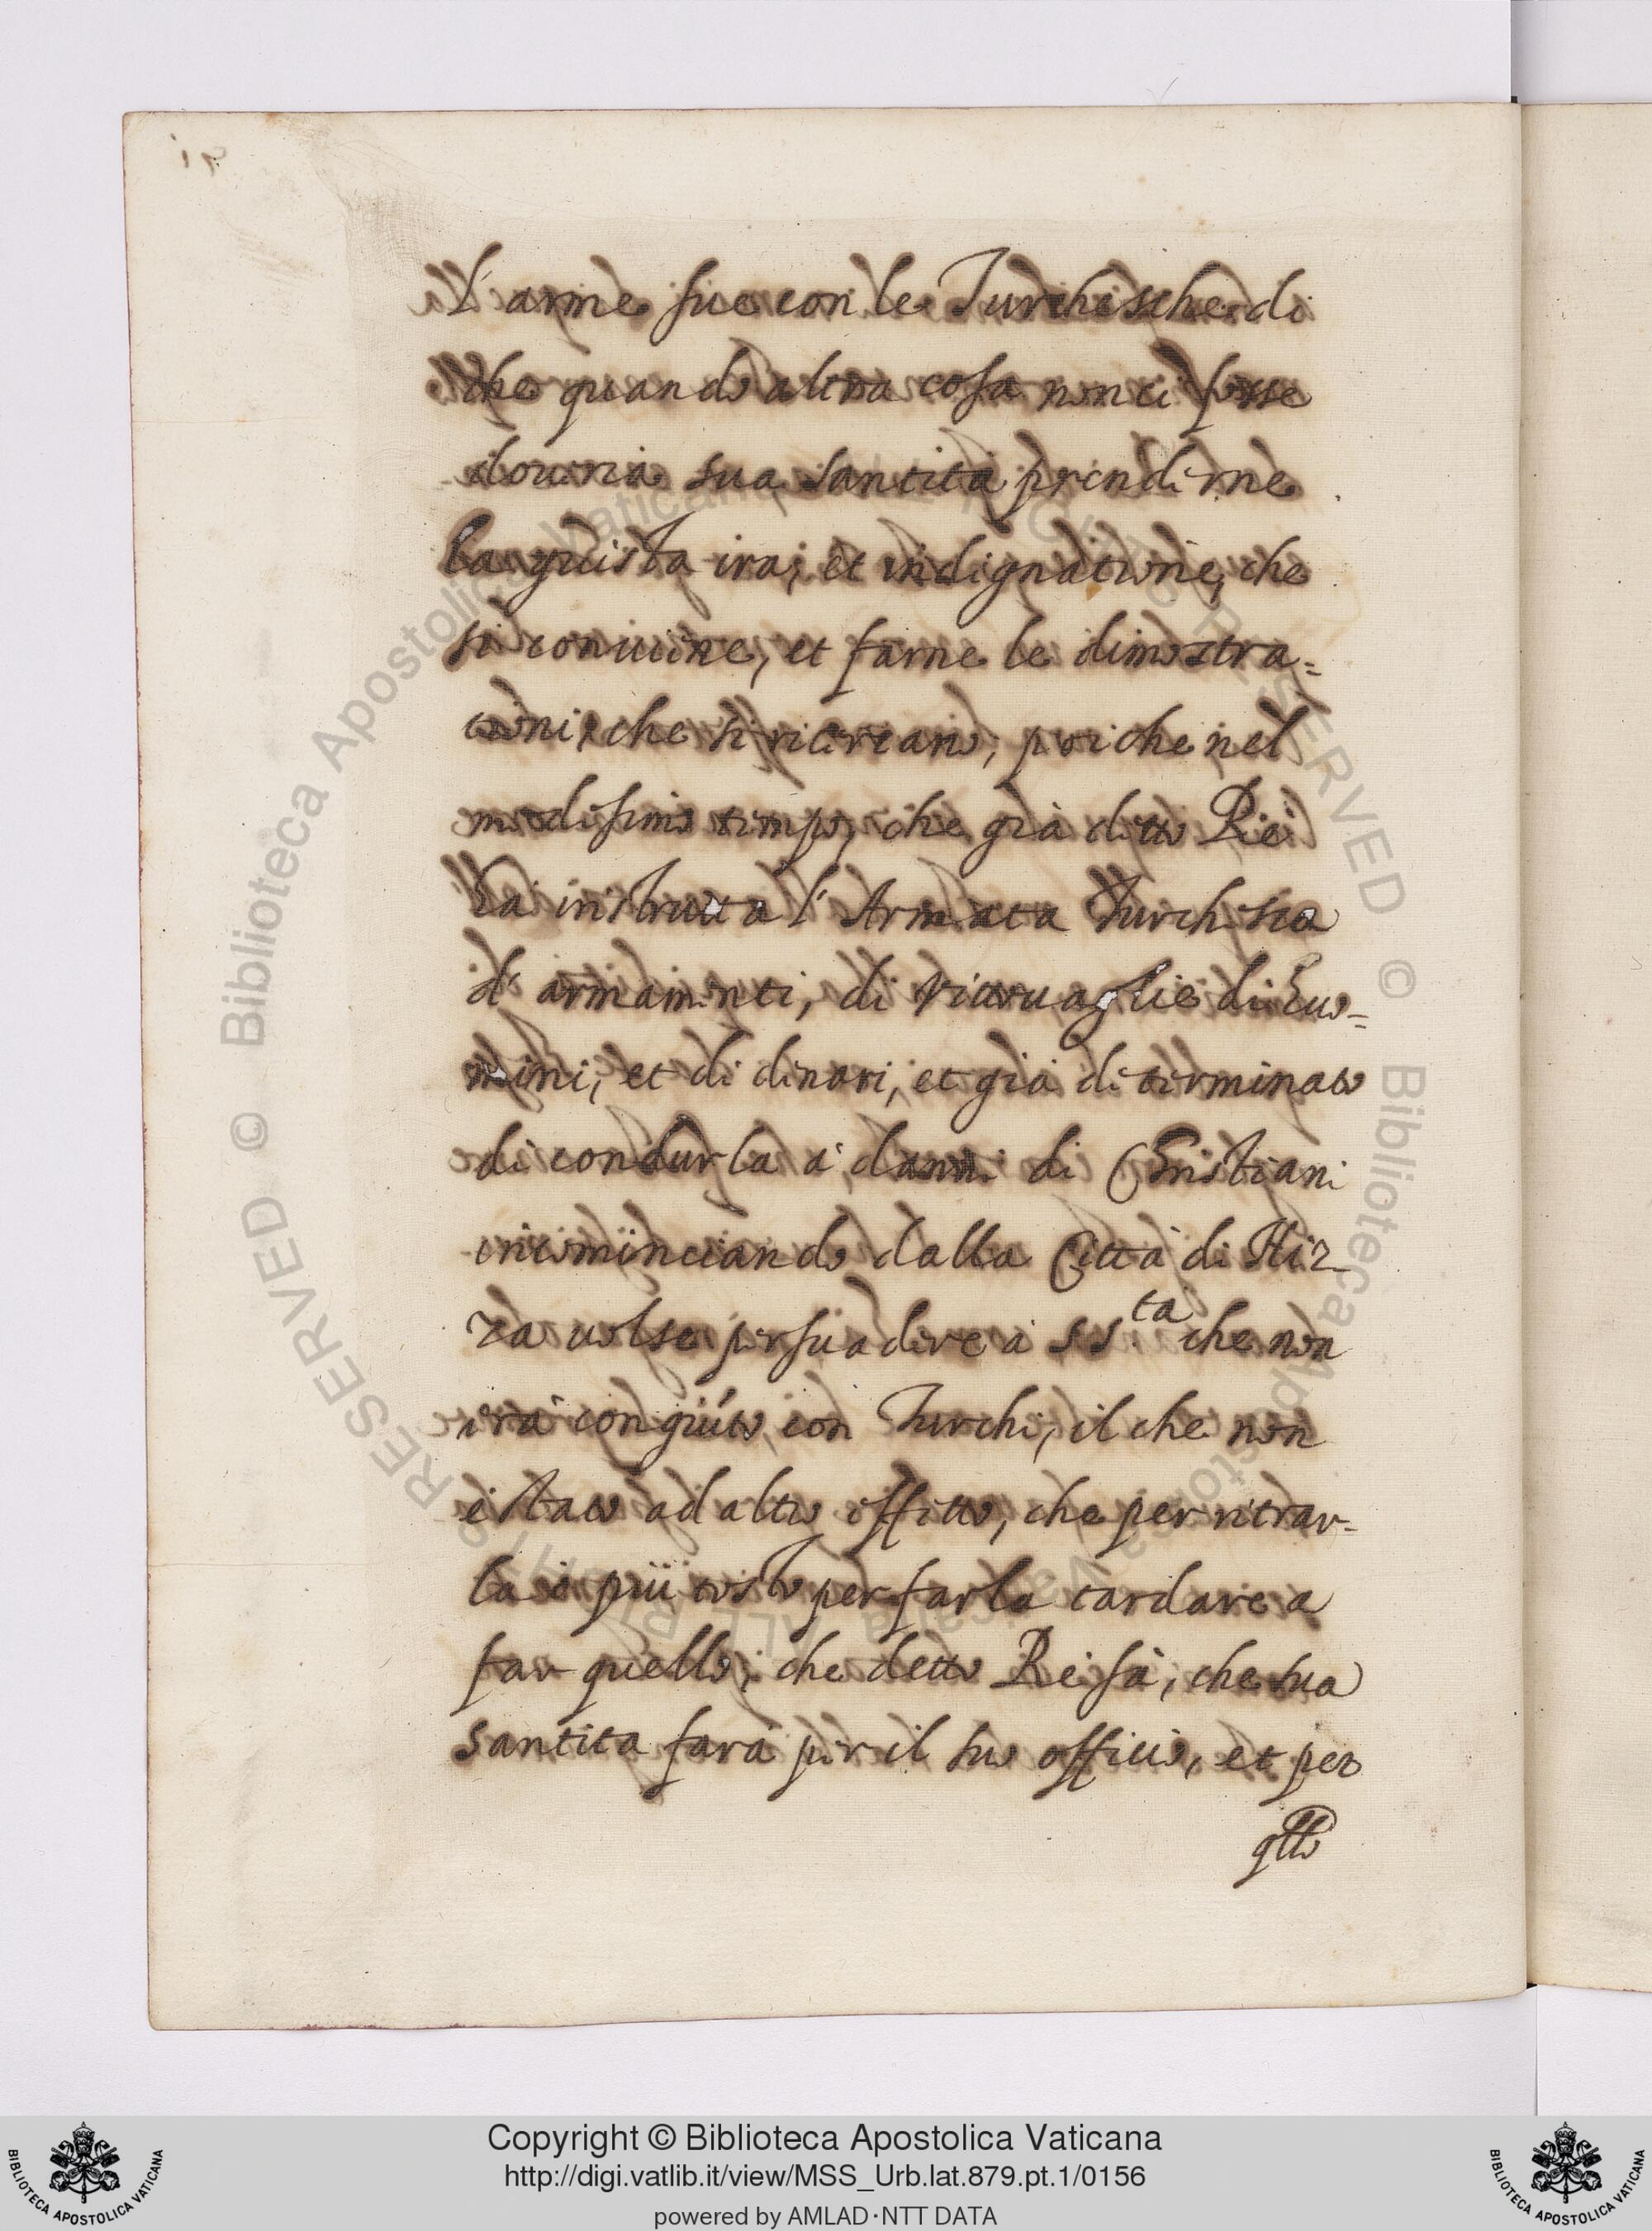 l'arme sue con le Turchesche di
che quando altra cosa non ci fosse
douria sua santità prenderne
la giusta ira, et indignatione, che
si conuiene, et farne le dimostra-
tioni, che si ricercano, poiche nel
medesimo tempo, che già detto Re
ha instrutta l'Armata Turchesca
d'armamenti, di vittuaglie di huo-
mini, et di denari, et già determinato
di condurla a danni di Christiani
incominciando dalla Città di Niz-
za uolse persuadere à S S.ta che non
era congiũto con Turchi, il che non
è stato ad altro effetto, che per ritrar-
la ò più tosto per farla tardare a
far quello, che detto Re sà, che sua
santita farà per il suo officio, et per
qllo
Copyright © Biblioteca Apostolica Vaticana
http://digi.vatlib.it/view/MSS_Urb.lat.879.pt.1/0156
powered by AMLAD·NTT DATA
BIBLIOTECA APOSTOLICA VATICANA
BIBLIOTECA APOSTOLICA VATICANA